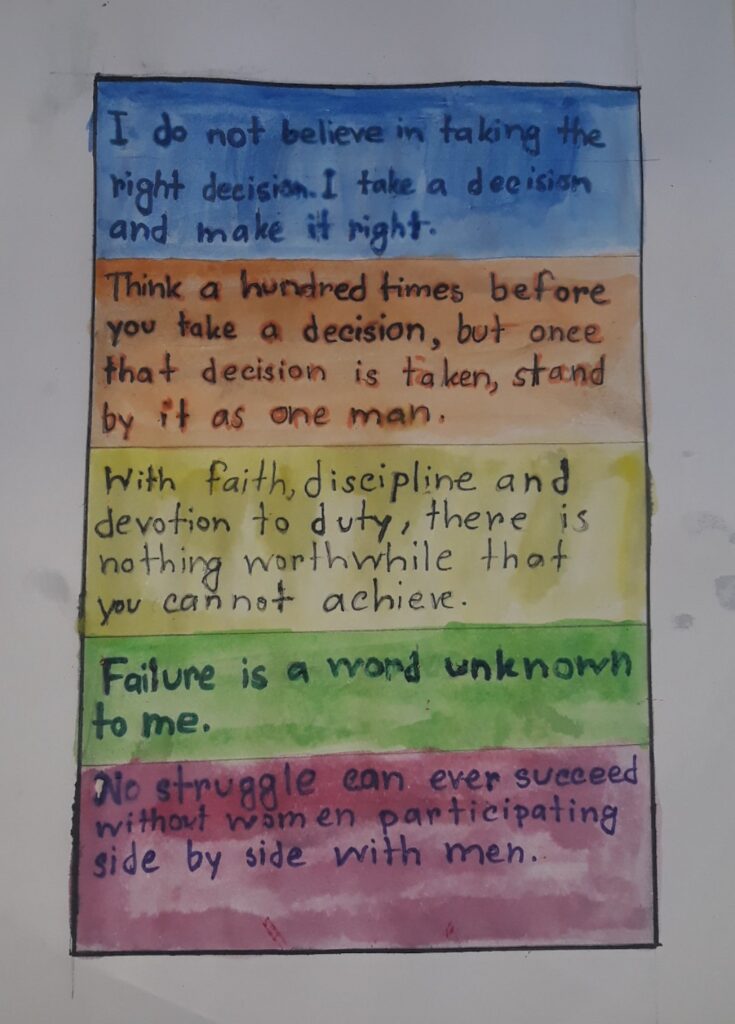 I do not believe in taking the
right decision. I take a decision
and make it right.
Think a hundred times before
you take a decision, but once
that decision is taken, stand
by it as one man.
With faith, discipline and
devotion to duty, there is
nothing worthwhile that
you cannot achieve.
Failure is a word unknown
to me.
No struggle can ever succeed
without women participating
side by side with men.